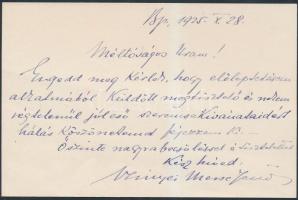 Bp. 1925. X. 28.
Méltóságos Uram!
Engedd meg kérlek, hogy előléptetésem
alkalmából küldött megtisztelő és nekem
végtelenül jól eső szerencsekivánataidért
hálás köszönetemet fejezzem ki. –
Őszinte nagyrabecsüléssel és tisztelettel
kész híved:
Szinyei Merse Jenő